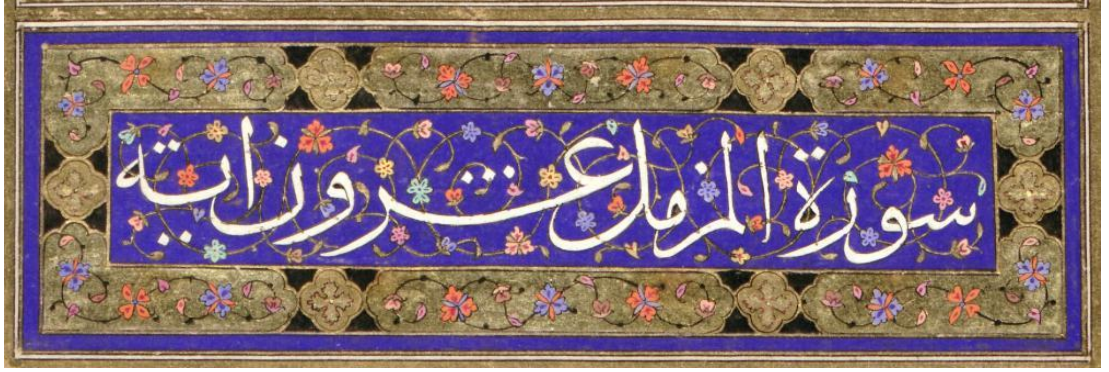 سورة المزمل عشرون اية